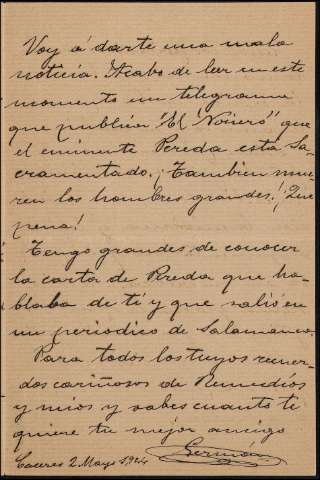 Voy á darte una mala
noticia. Acabo de leer en este
momento un telegrama
que publica "El Noticiero" que
el eminente Pereda esta Sa-
cramentado. ¡Tambien mue-
ren los hombres grandes! ¡Que
pena!
Tengo grandes de conocer
la carta de Pereda que ha-
blaba de ti y que salió en
un periodico de Salamanca.
Para todos los tuyos recuer-
dos cariñosos de Remedios
y mios y sabes cuanto te
quiere tu mejor amigo
Germán
Caceres 2 Mayo